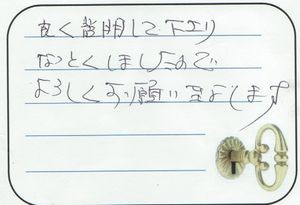 良く説明して下さり
なっとくしましたので
よろしくお願い致します